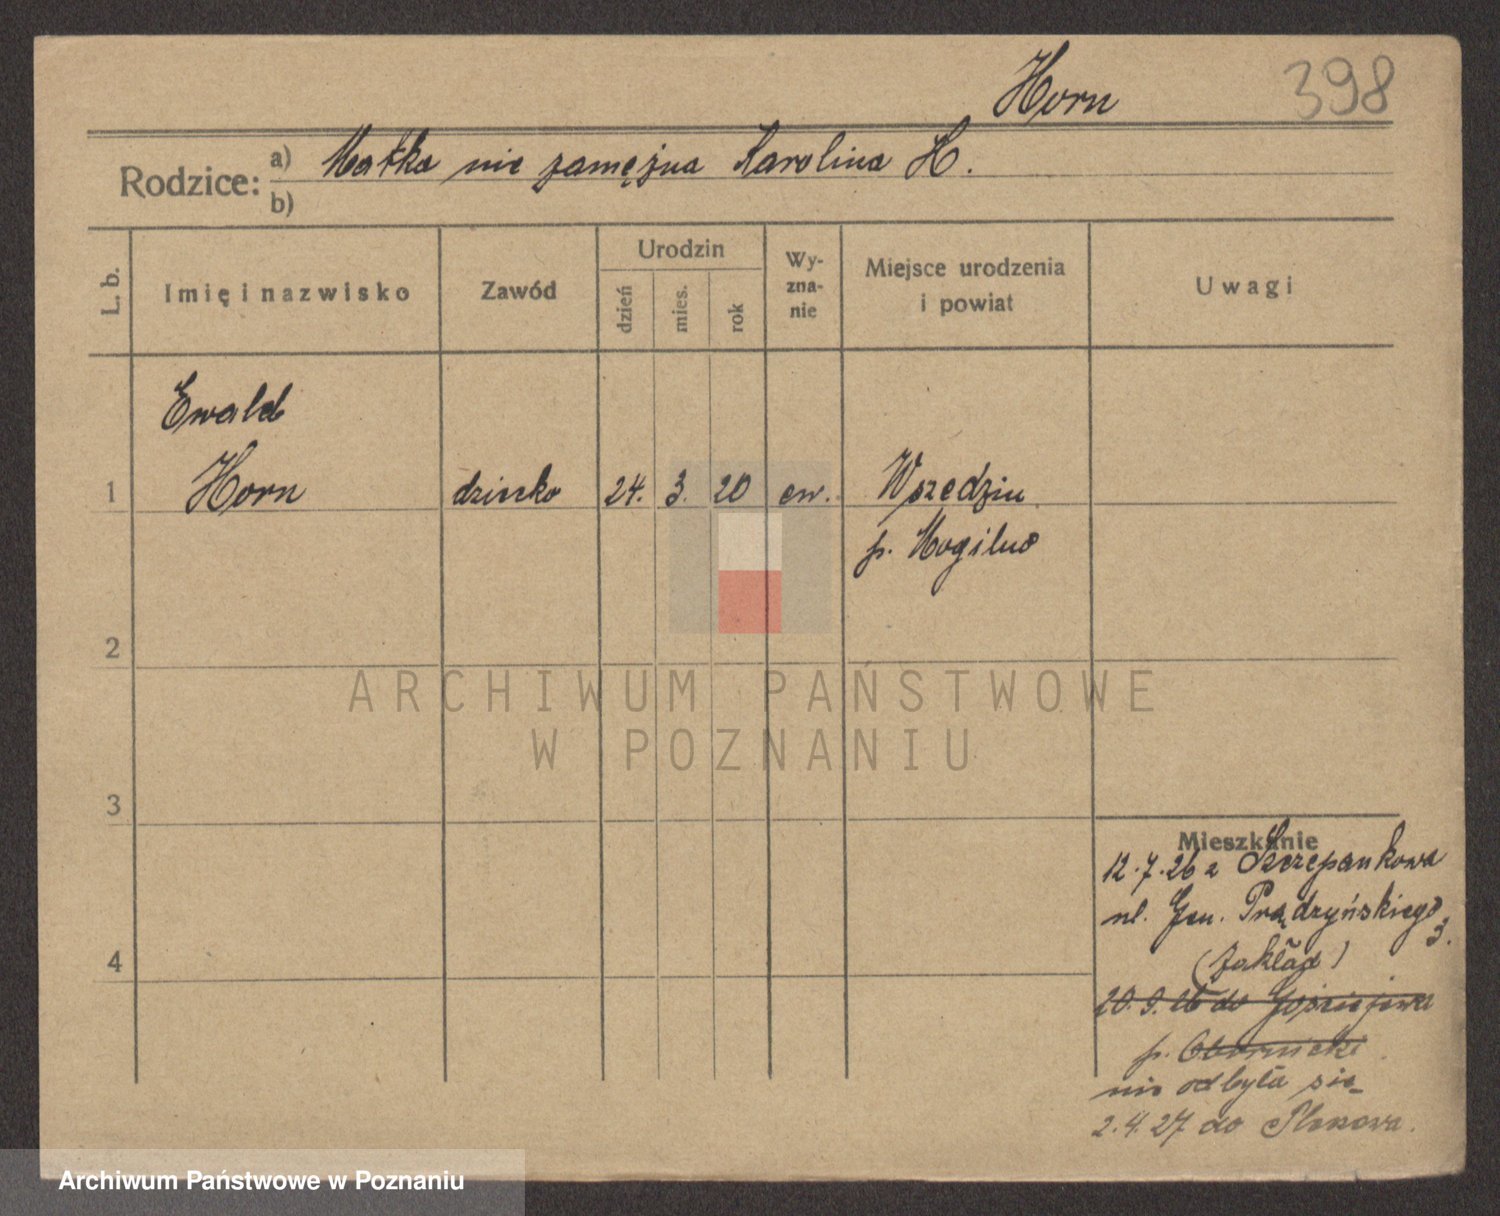 Horn 398
Rodzice: a) Matka nie zamężna Karolina H.
b)
L. b.
Imię i nazwisko
Zawód
Urodzin
dzień
mies.
rok
Wy-
zna-
nie
Miejsce urodzenia
i powiat
Uwagi
Ewald
1 Horn dziecko 24. 3. 20 ew. Wszedziu
p. Mogilno
2
ARCHIWUM PAŃSTWOWE
W POZNANIU
3
Mieszkanie
12.7.26 z Szczepankowa
ul. Gen. Prądzyńskiego
3.
4
(Zakład)
20.9.26 do Gościejewa
p. Obornicki
nie odbyła się
2.4.27 do
Archiwum Państwowe w Poznaniu